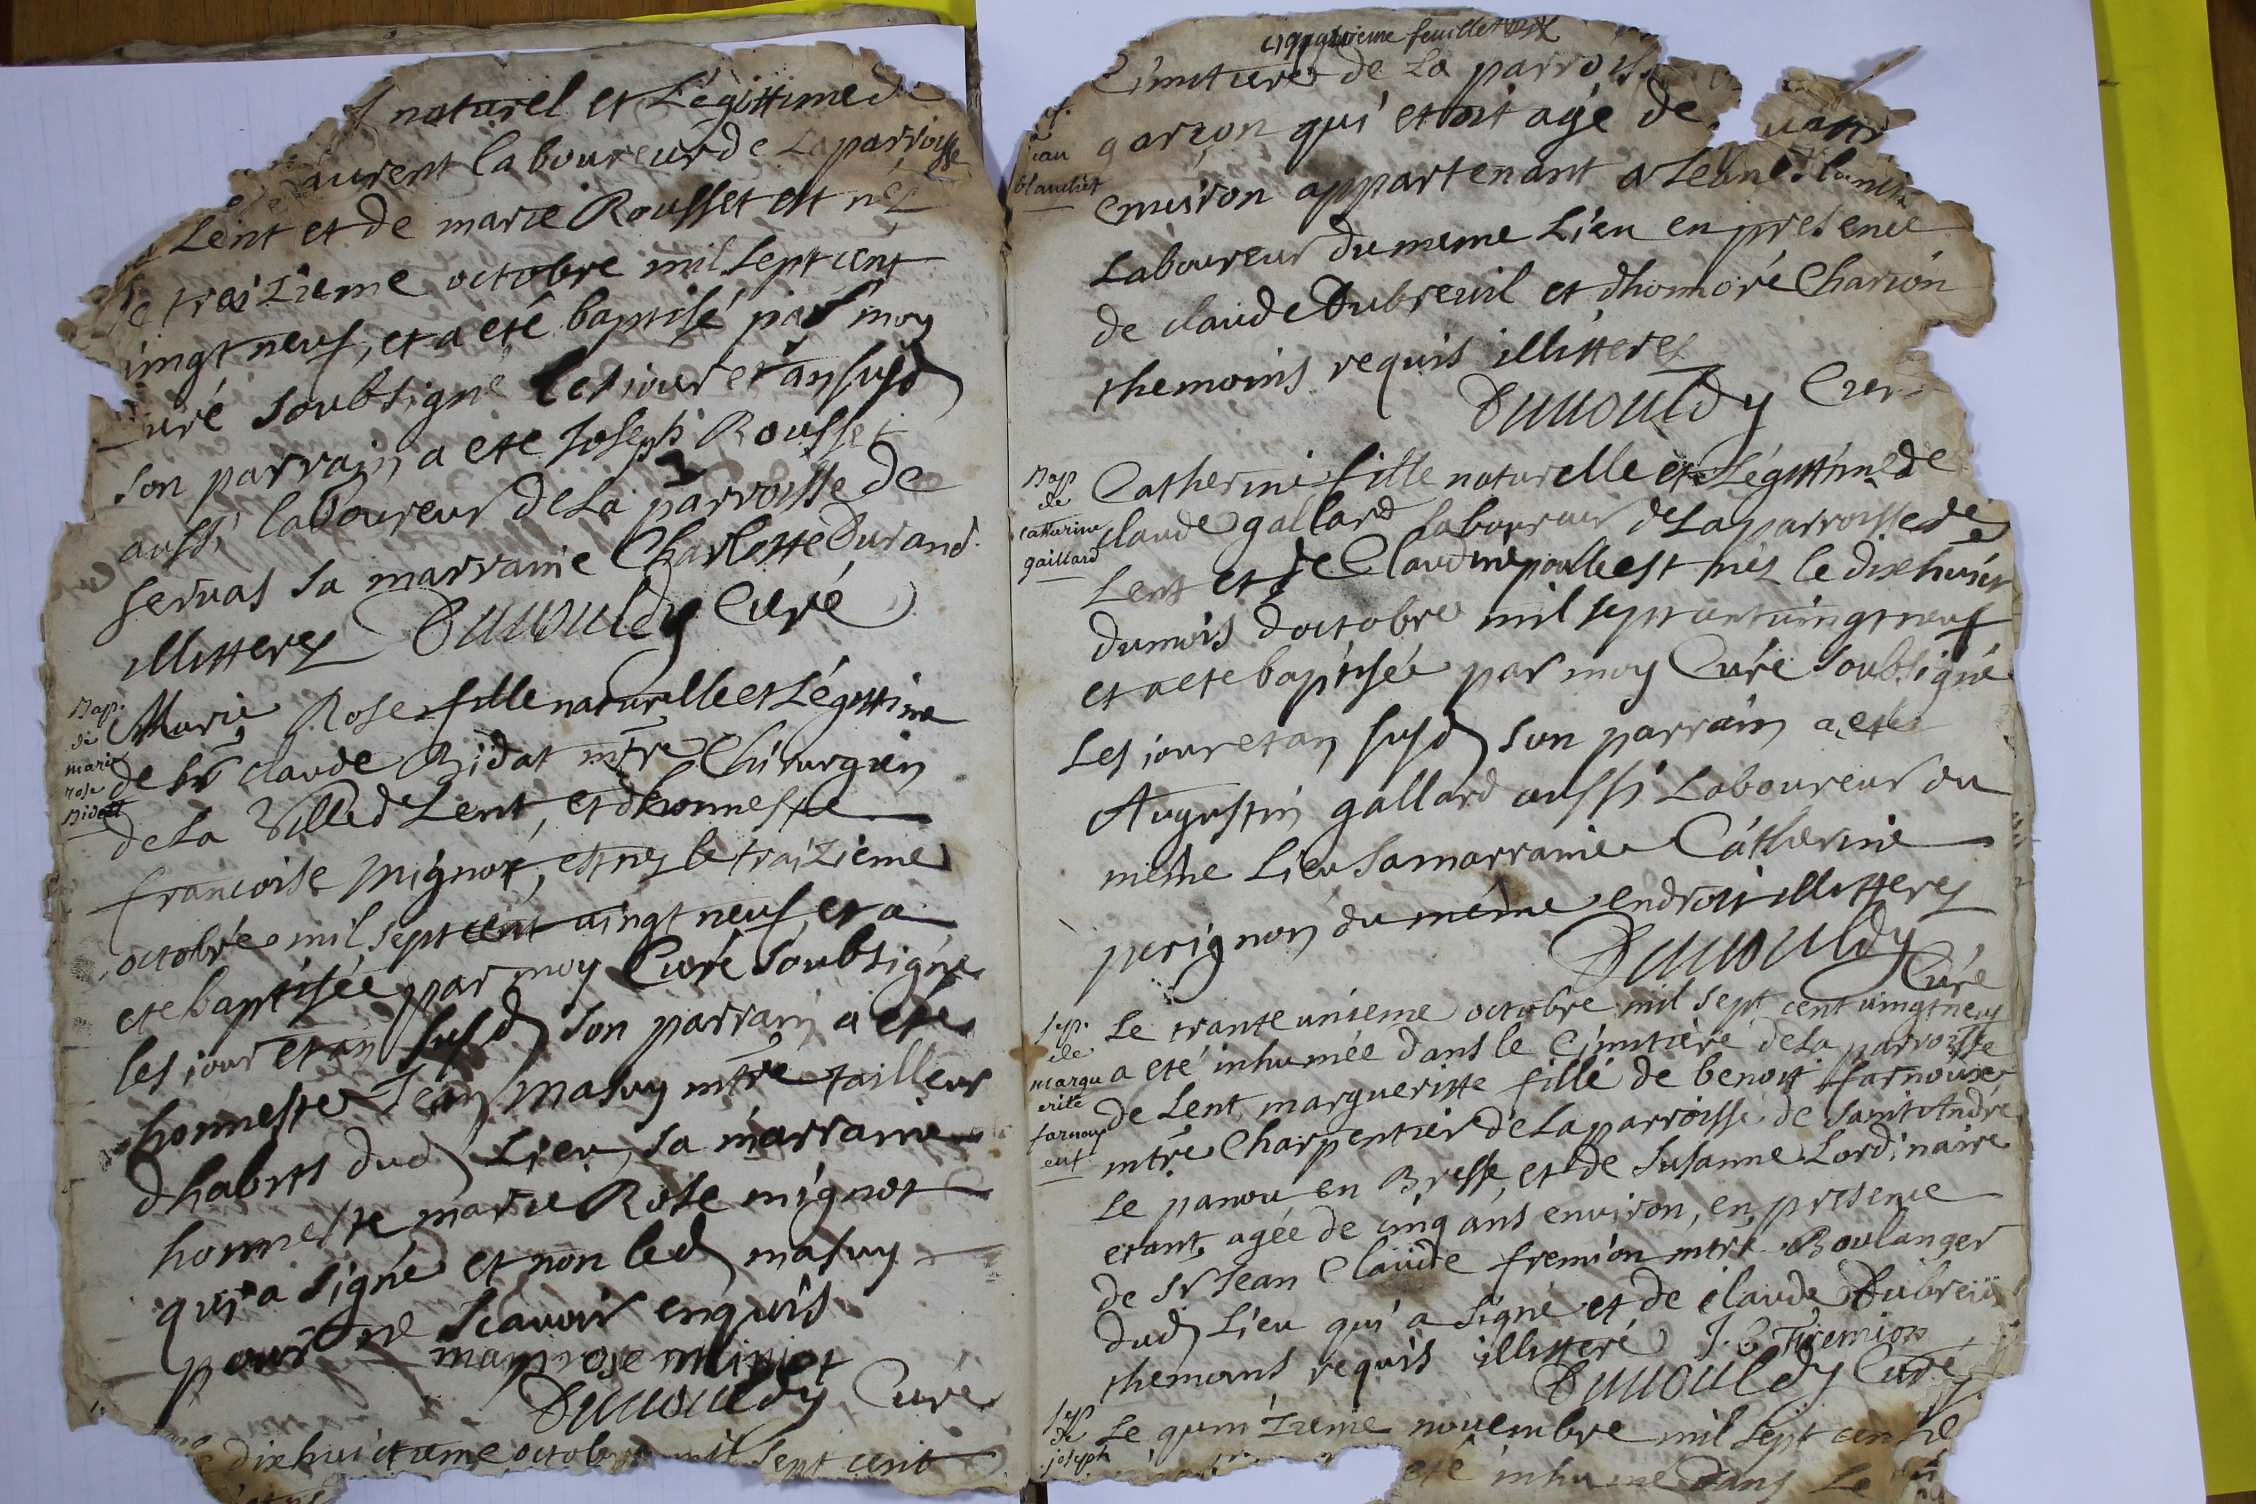 naturel et Légittime de
aurent laboureur de La parroisse
Lent et de marie Rousset est néz
le treizieme octobre mil sept cent
vingt neuf, et a eté baptisé par moy
Curé soubsigné les jour et an susd
son parrain a eté Joseph Rousset
aussi laboureur de La parroisse de
servas sa marraine Charlotte Durand
illitterez Duvouldy Curé
Bap.
de
marie
rose
Bidat
Marie Rose fille naturelle et Légittime
de sr claude Bidat mtre Chirurgien
de La Ville de Lent, et dhonneste
francoise mignot, est néz le traizieme
octobre mil sept cent vingt neuf, et a
eté baptisée par moy Curé soubsigné
les jour et an susd son parrain a eté
honneste Jean masuy mtre tailleur
dhabits dud Lieu, sa marraine
honneste marie Rose mignot
qui a signé et non led masuy
pour ne scavoir enquis
marirose minjot
Duvouldy Curé
dixhuictieme octobre mil sept cent
cinquieme feuillet
Cimitiere de La parroisse
garçon qui etoit agé de quatre
environ appartenant a Jean blanchet
Laboureur du meme Lieu en presence
de claude Dubreuil et dhonnoré Charion
themoins requis illitterez
Duvouldy Curé
jean
blanchet
Bap
de
catherine
gaillard
Catherine fille naturelle et Légittime de
claude gallard Laboureur de La parroisse de
Lent et de Claudine poulle est néz le dixhuict
du mois doctobre mil sept cent vingt neuf
et a eté baptisée par moy Curé soubsigné
Les jour et an susd son parrain a eté
Augustin gallard aussi Laboureur du
meme Lieu sa marraine Catherine
perignon du meme endroit illitterez
Duvouldy
Curé
sep.
de
margu
erite
farnoux
Le trante unieme octobre mil sept cent vingt neuf
a eté inhumée dans le Cimitiere de La parroisse
de Lent margueritte fille de benoit farnoux
mtre Charpentier de La parroisse de saint André
Le panou en Bresse, et de Susanne Lordinaire
etant agée de cinq ans environ, en presence
de sr Jean Claude fremion mtre Boulanger
dud Lieu qui a signé et de claude Dubreuil
themoins requis illitteré J. C. Fremion
Duvouldy Curé
sep
de
joseph
Le quinzieme novembre mil sept cent
eté inhumé dans Le